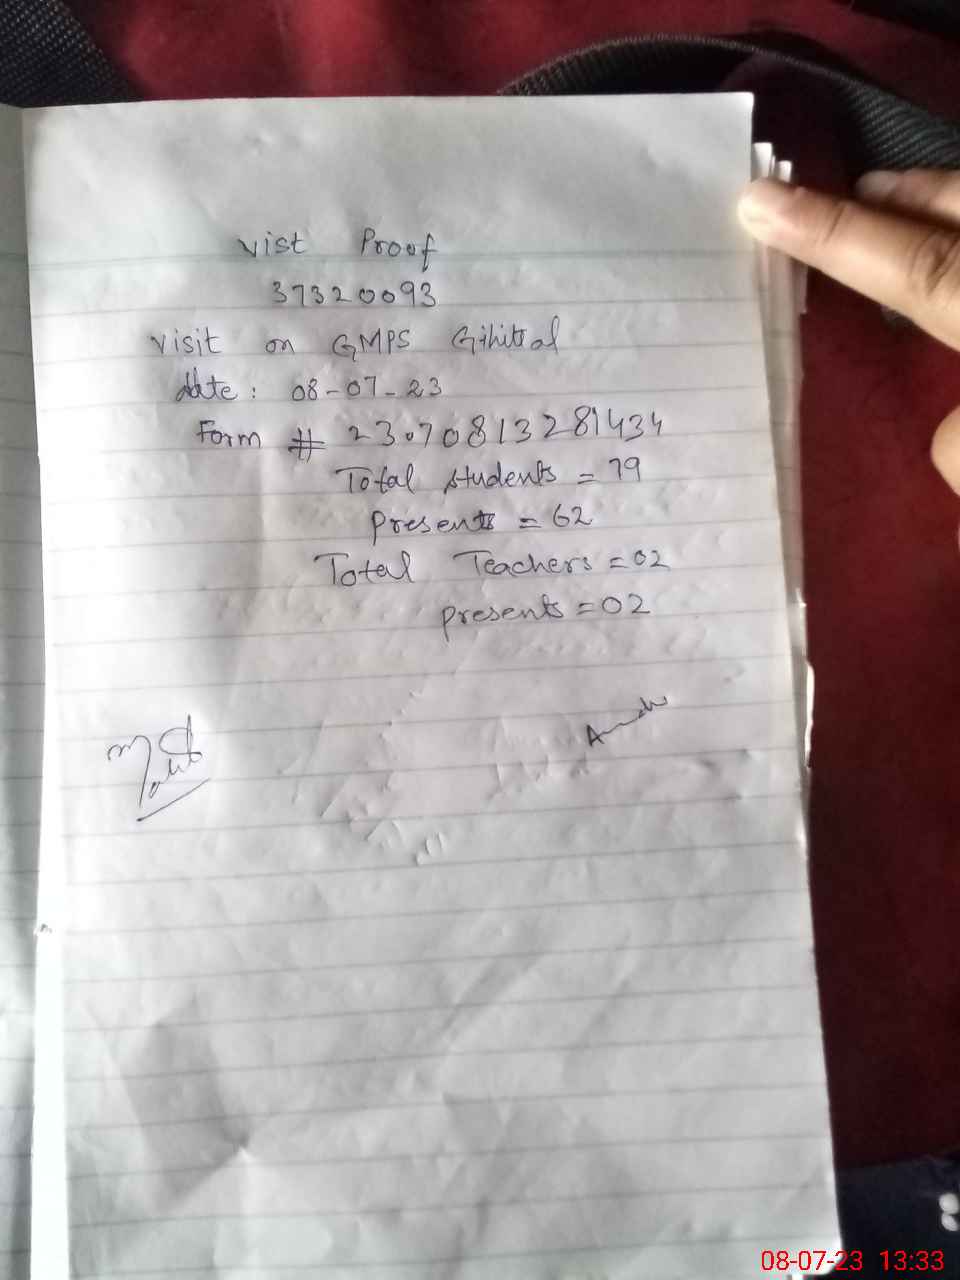 Vist Proof
37320093
Visit on GMPS Gihittal
date: 08-07-23
Form # 23070813281434
Total students = 79
presents = 62
Total Teachers = 02
presents = 02
08-07-23 13:33